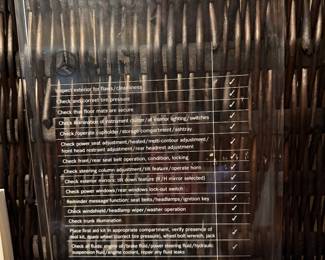 Inspect exterior for flaws/cleanliness ✓
Check and correct tire pressure ✓
Check that floor mats are secure ✓
Check illumination of instrument cluster/all interior lighting/switches ✓
Check/operate cupholder/storage compartment/ashtray ✓
Check power seat adjustment/heated/multi-contour adjustment/
front head restraint adjustment/rear headrest adjustment ✓
Check front/rear seat belt operation, condition, locking ✓
Check steering column adjustment/tilt feature/operate horn ✓
Check exterior mirrors: tilt down feature (R/H mirror selected) ✓
Check power windows/rear windows lock-out switch ✓
Reminder message function: seat belts/headlamps/ignition key ✓
Check windshield/headlamp wiper/washer operation ✓
Check trunk illumination ✓
Place first aid kit in appropriate compartment, verify presence of
tool kit, spare wheel (correct tire pressure), wheel bolt wrench, jack ✓
Check all fluids: engine oil/brake fluid/power steering fluid/hydraulic
suspension fluid/engine coolant, repair any fluid leaks ✓